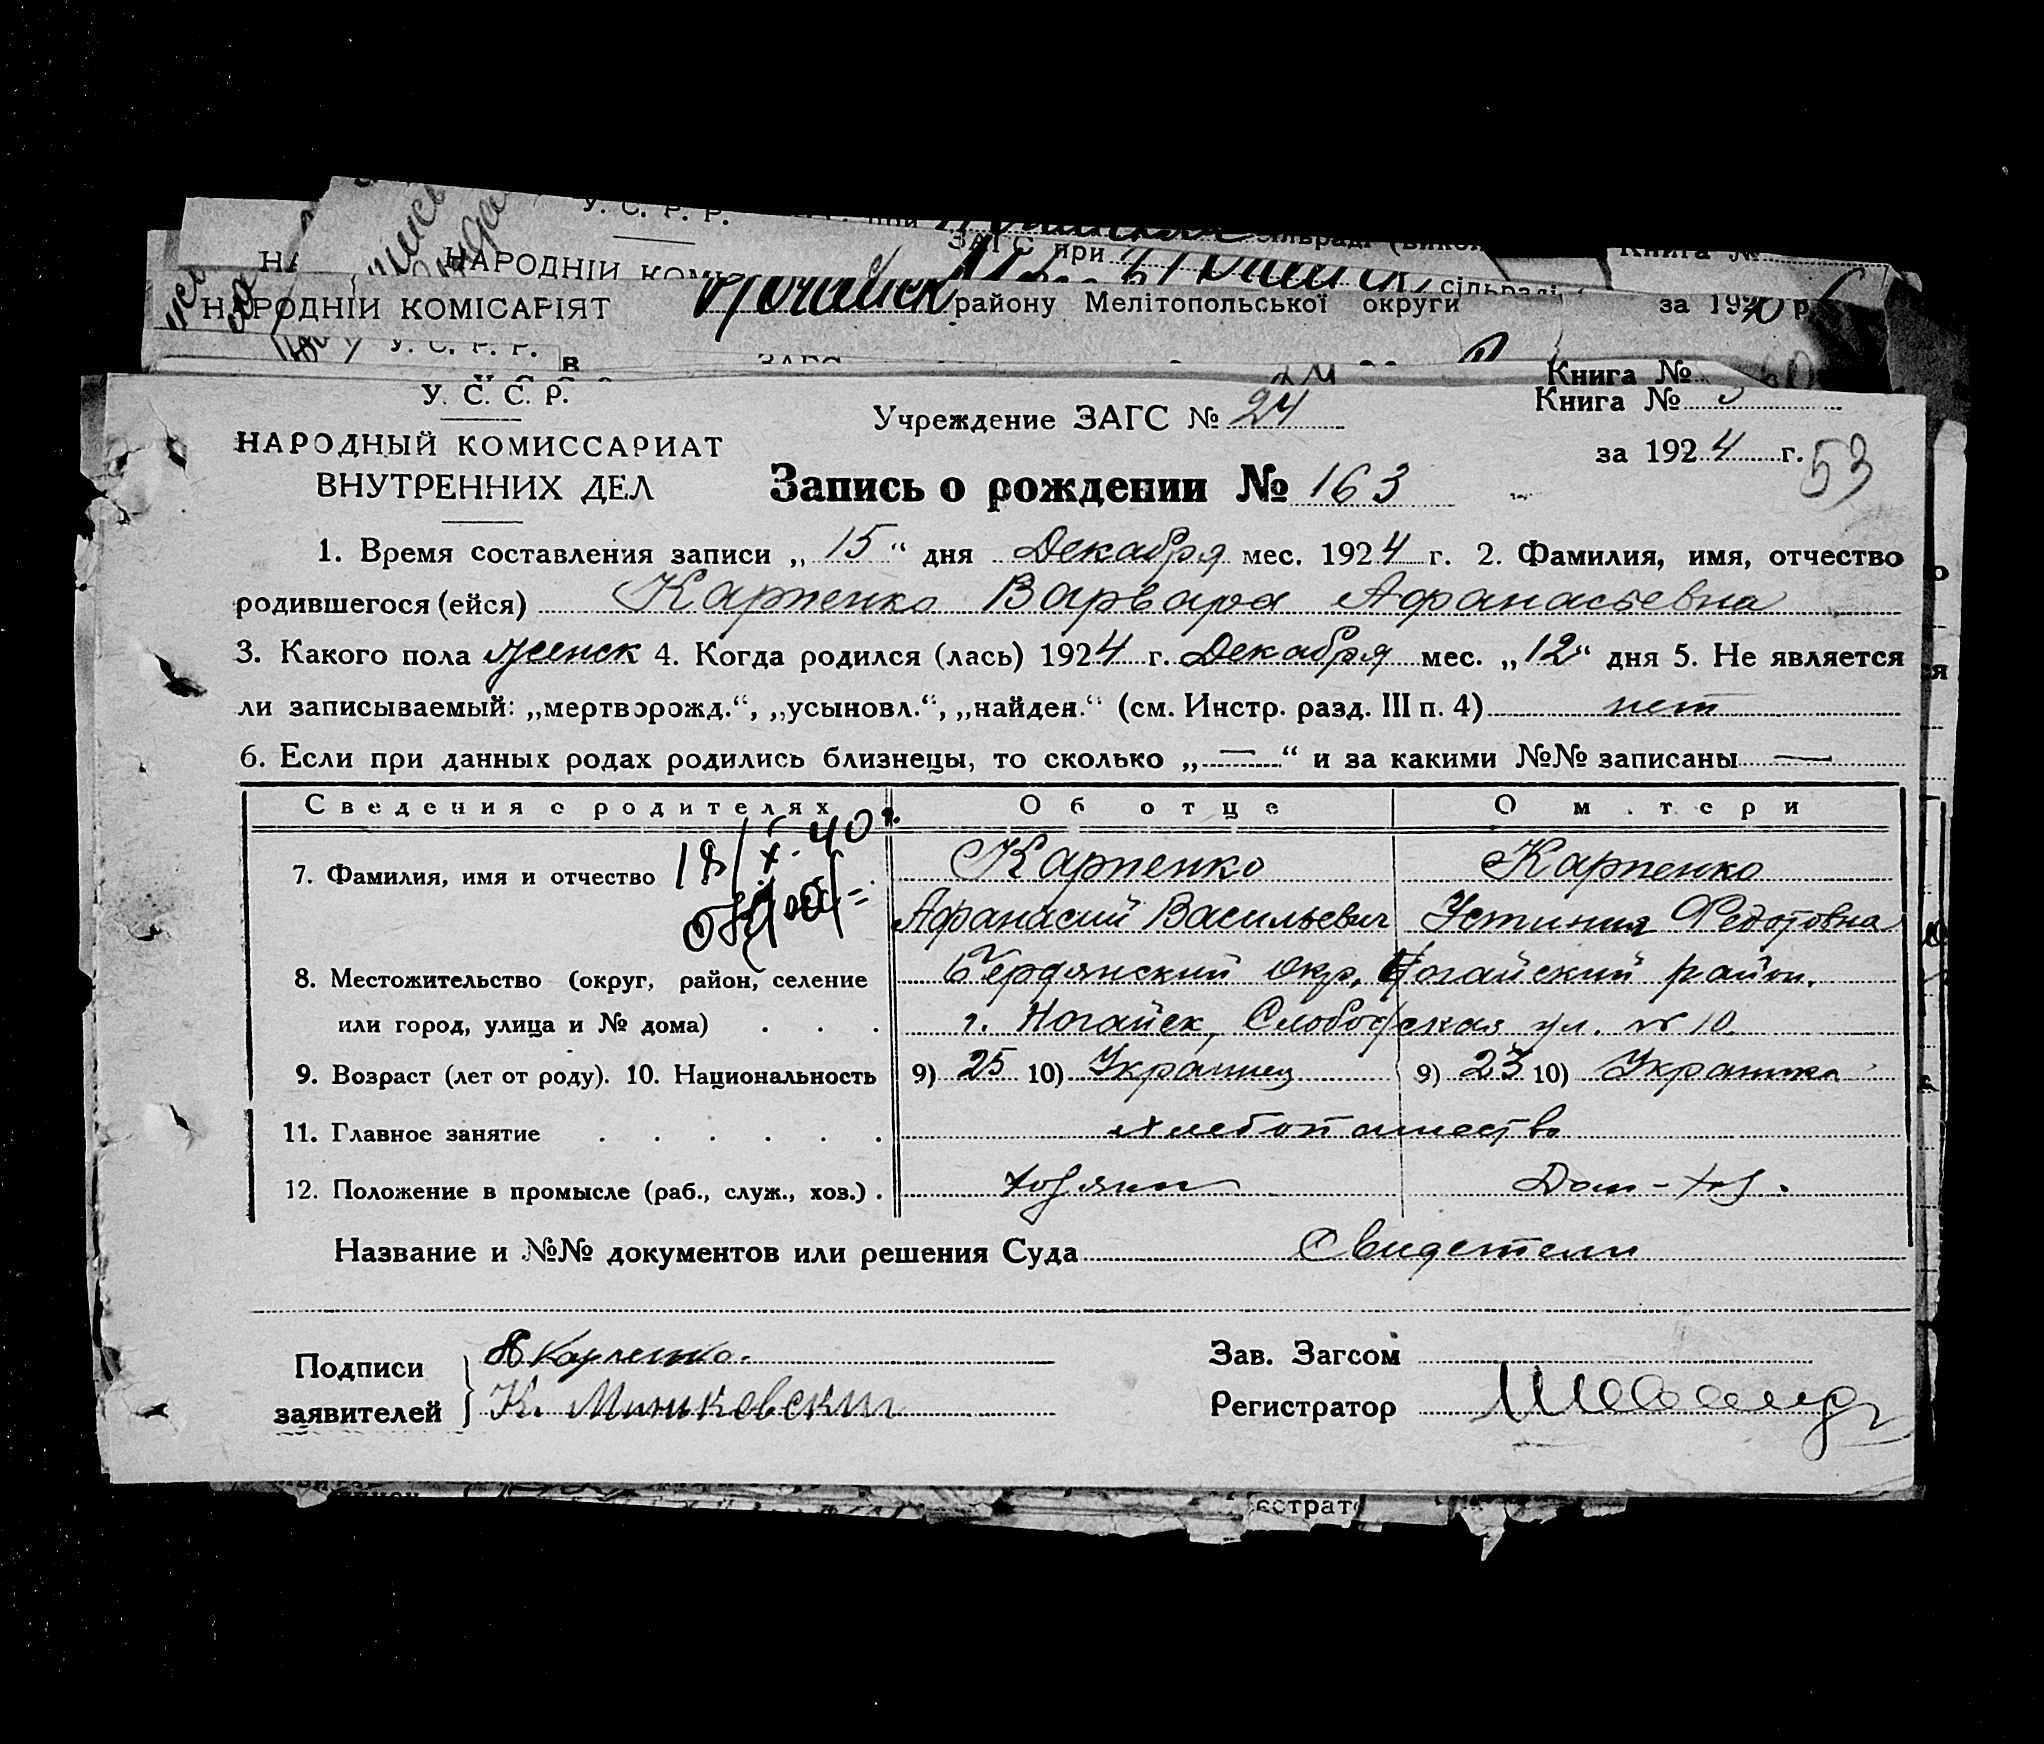 У. С. Р. Р.
НАРОДНІЙ КОМІСАРІЯТ району Мелітопольської округи за 19
У. С. Р. Р.
Книга №
У. С. С. Р.
Учреждение ЗАГС № 24 Книга № 3
НАРОДНЫЙ КОМИССАРИАТ за 1924 г. 53
ВНУТРЕННИХ ДЕЛ Запись о рождении № 163
1. Время составления записи „ 15 “ дня Декабря мес. 1924 г. 2. Фамилия, имя, отчество
родившегося (ейся) Карпенко Варвара Афанасьевна
3. Какого пола женск 4. Когда родился (лась) 1924 г. Декабря мес. „ 12 “ дня 5. Не является
ли записываемый: „мертворожд.“, „усыновл.“, „найден.“ (см. Инстр. разд. III п. 4) нет
6. Если при данных родах родились близнецы, то сколько „ — “ и за какими №№ записаны —
Сведения о родителях Об отце О матери
18/X-40 г.
7. Фамилия, имя и отчество Карпенко Карпенко
Афанасий Васильевич Устиния Федотовна
8. Местожительство (округ, район, селение Бердянский окр, Ногайский район.
или город, улица и № дома) . . . г. Ногайск, Слободская ул. № 10
9. Возраст (лет от роду). 10. Национальность 9) 25 10) Украинец 9) 23 10) Украинка
11. Главное занятие . . . . . . хлебопашество
12. Положение в промысле (раб., служ., хоз.) . хозяин Дом-хоз.
Название и №№ документов или решения Суда Свидетели
Подписи А Карпенко. Зав. Загсом
заявителей К. Миньковский Регистратор